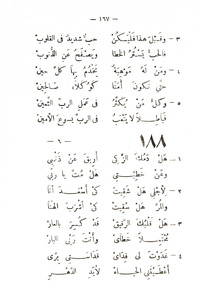 — ١٦٧ —
٣ – وقبل هذا فليكن حب شديد في القلوب
فالحب يستر الخطا ويصفح عن الذنوب
٤ – ومن له موهبة يخدم بها كل حين
حتى نكون أمنا كوكلا صالحين
٥ – وكل من يكثر في عمل الرب الثمين
فباطلا لا يتعب في الرب يسوع الأمين
١٨٨
— ٦ —
١ – هل دمك الزكي أريق عن ذنبي
ومن خطيتي هل مت يا ربي
٢ – لأجلي هل شقيت كي أسعد أنا
والمر هل سقيت كي أشرب الهنا
٣ – هل قلبك الرقيق قد كسر بالعار
محتملا خطاي وأنت ربي البار
٤ – غدوت لي فدى
أعطيتني الحياة لأبد الدهر